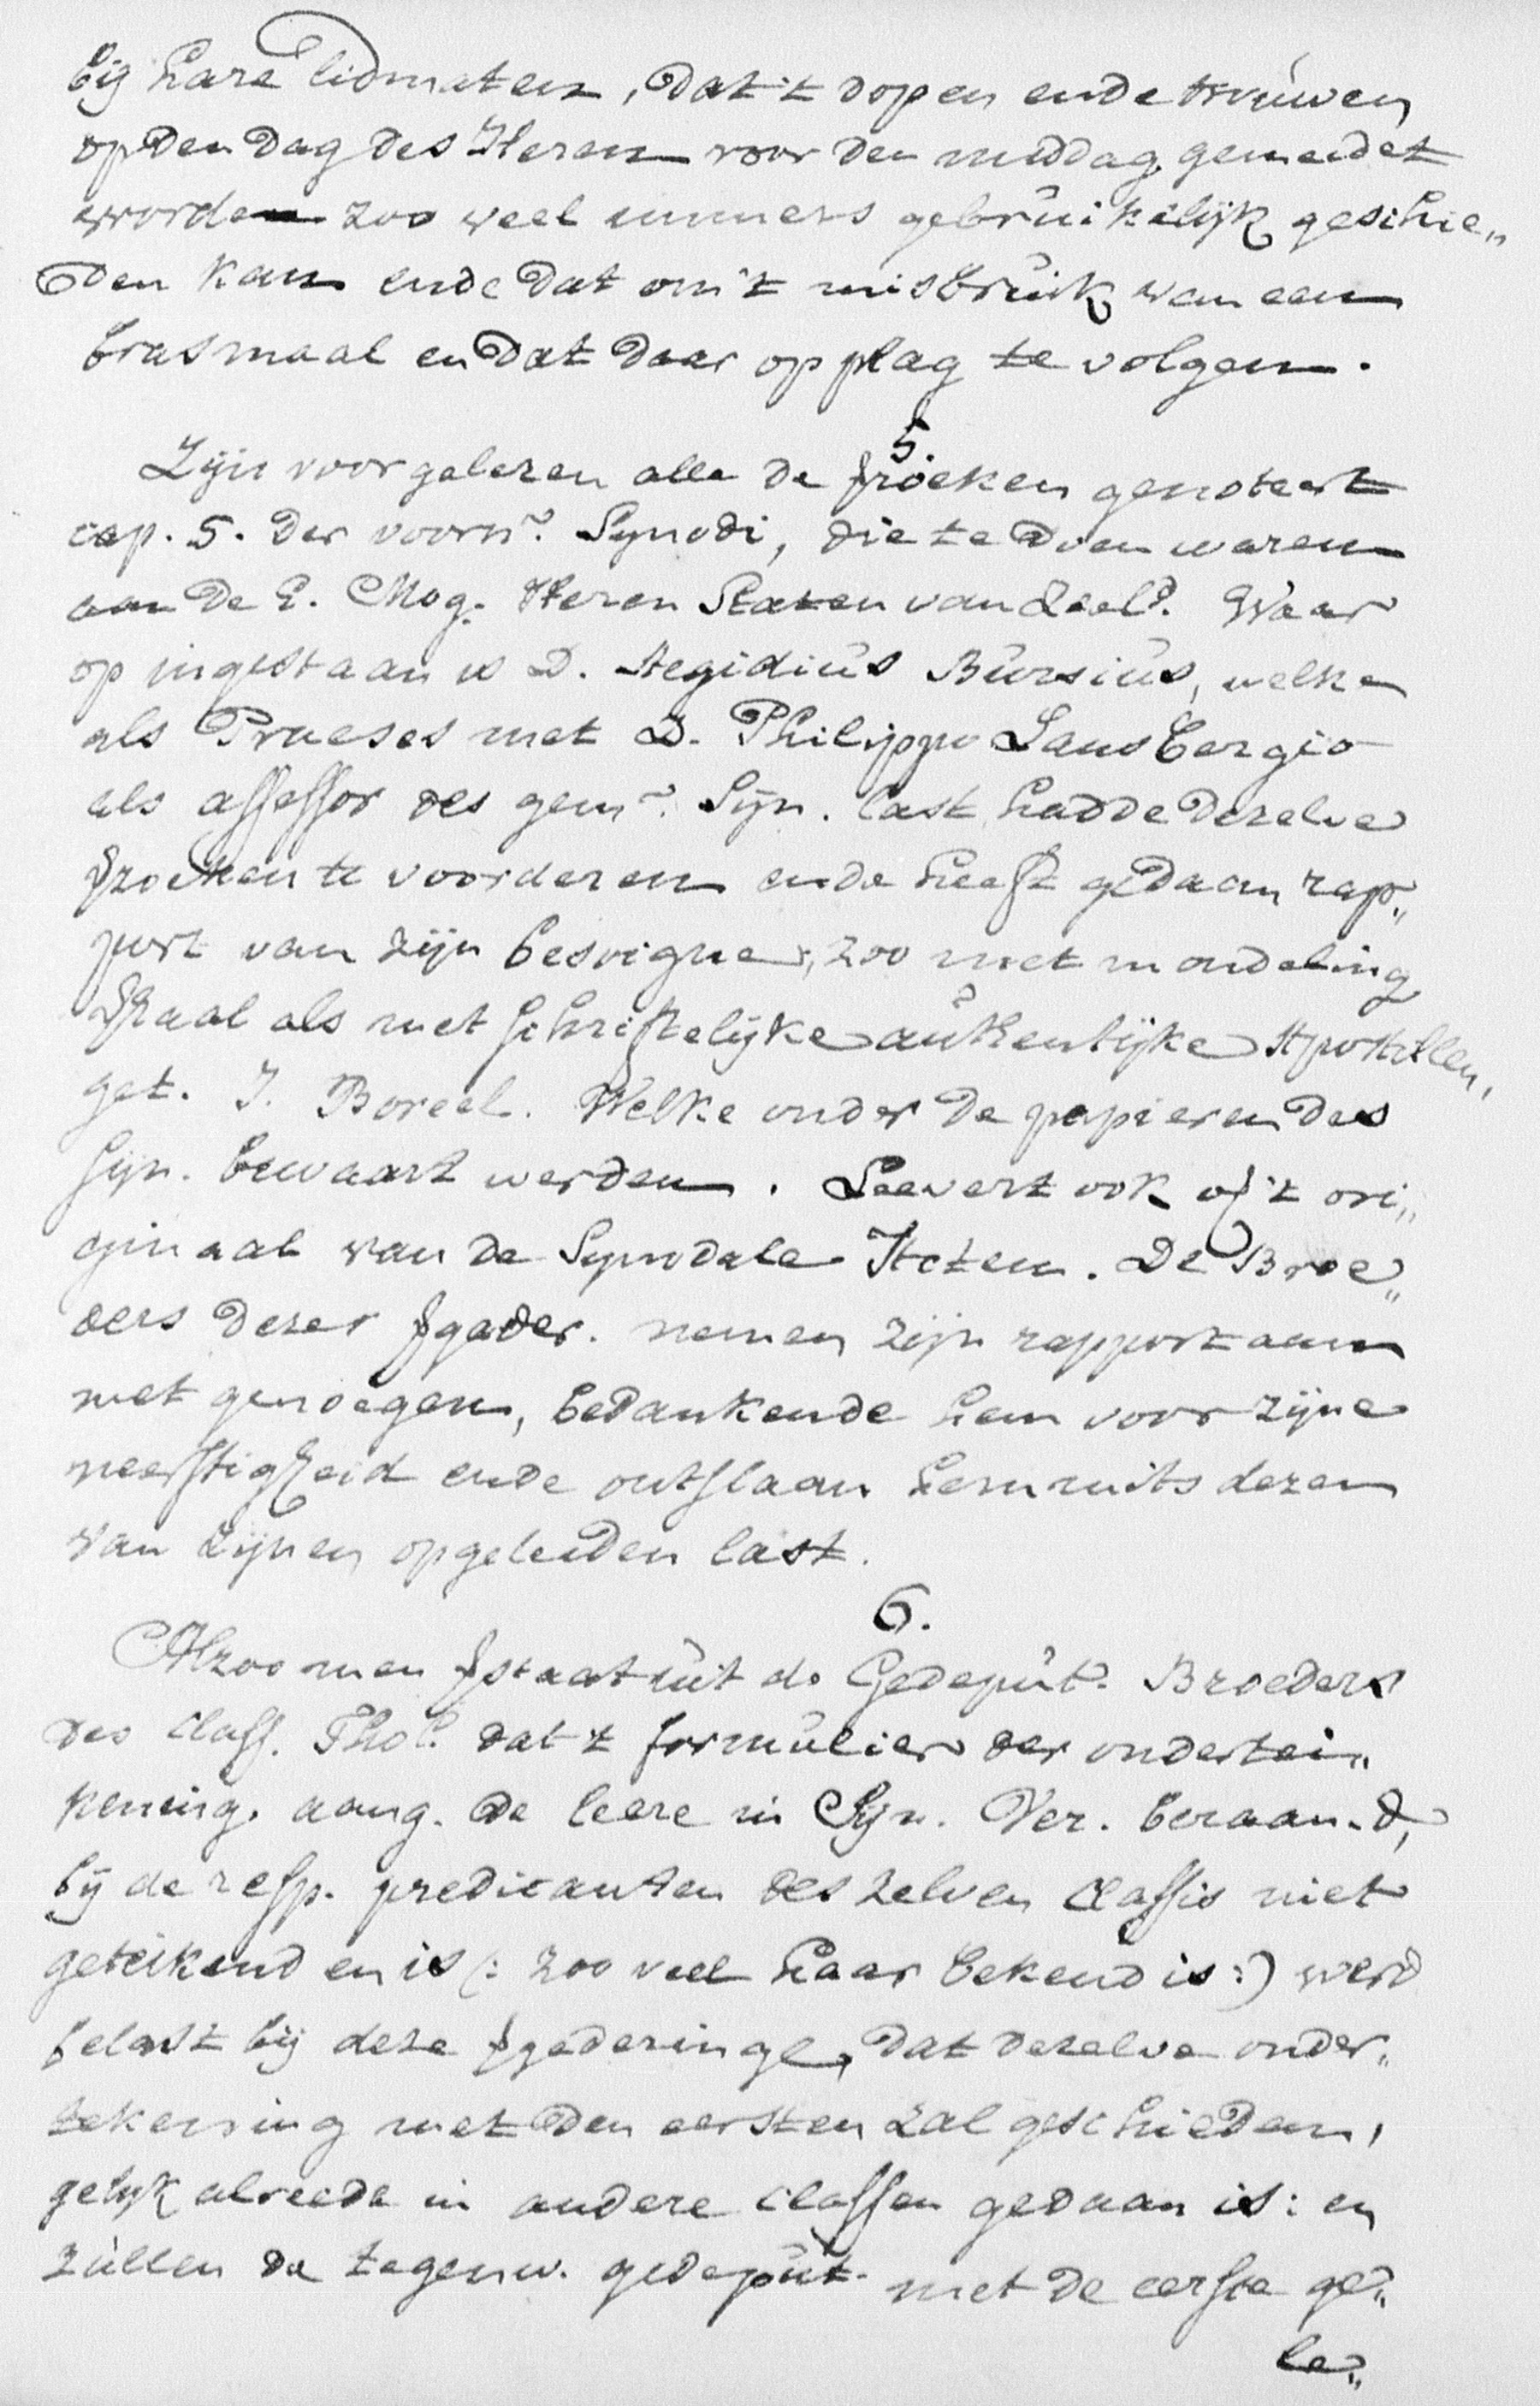 bij hare lidmaten, dat 't dopen ende trouwen
op den dag des Heren voor den middag gemeidet
worden zoo veel immers gebruikelijk geschie„
den kan ende dat om 't misbruik van een
brasmaal en dat daar op plag te volgen.
5.
Zijn voorgelezen alle de ƒzoeken genoteert
cap. 5. der voorn. Synodi, die te doen waren
aan de E. Mog. Heren Staten van Zeel. Waar
op ingestaan is D. Aegidius Bursius, welke
als Praeses met D. Philippo Lansbergio
als assessor des gem. Sijn. last hadde dezelve
ƒzoeken te voorderen ende heeft gedaan rap„
port van zijn besoigne, zoo met mondeling
ƒhaal als met schriftelijke authentijke Apostillen,
get. J. Boreel. Welke onder de papieren des
Sijn. bewaart werden. Leevert ook of 't ori„
ginaal van de Synodale Acten. De Broe„
ders dezer ƒgader. nemen zijn rapport aan
met genoegen, bedankende hem voor zijne
neerstigheid ende ontslaan hem mits dezen
van zijnen opgeleiden last.
6.
Alzoo men ƒstaat uit de Gedeput. Broeders
des Class. Thol. dat 't formulier der ondertei„
kening. aang. de leere in Sijn. Ver. beraamd,
bij de resp. predicanten deszelven Classis niet
geteikend en is (: zoo veel haar bekend is:) werd
belast bij deze ƒgaderinge, dat dezelve onder„
tekening met den eersten zal geschieden,
gelijk alreede in andere classen gedaan is: en
zullen de tegenw. gedeput. met de eerste ge„
le„